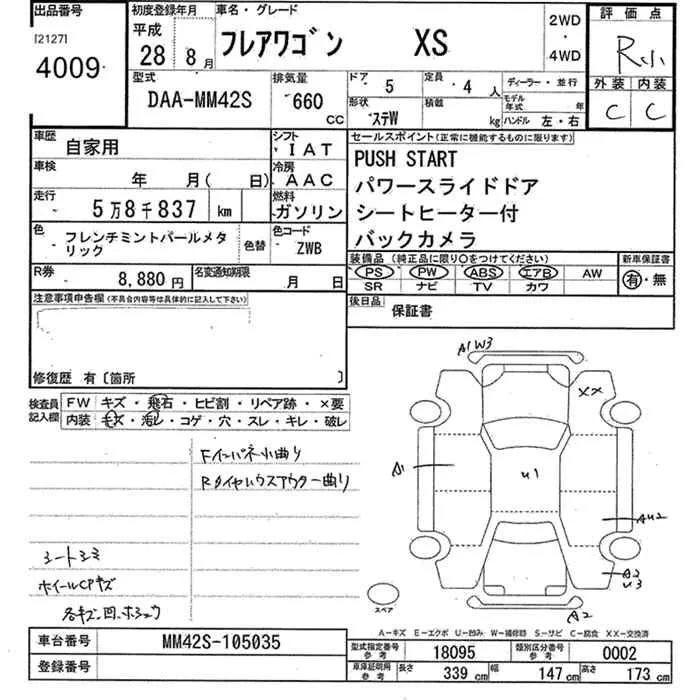 出品番号
[2127]
4009
初度登録年月
平成
28年
8月
車名・グレード
フレアワゴン XS
2WD
・
4WD
評価点
R小
外装 内装
C C
型式
DAA-MM42S
排気量
660 cc
ドア 5
形状 ステW
定員 4人
積載 kg
ディーラー・並行
モデル年式 年
ハンドル 左・右
車歴 自家用
シフト IAT
車検 年 月( 日)
冷房 AAC
走行 5万8千837 km
燃料 ガソリン
色 フレンチミントパールメタリック
色替
色コード ZWB
R券 8,880円
名変通知期限 月 日
セールスポイント(正常に機能するものに限ります)
PUSH START
パワースライドドア
シートヒーター付
バックカメラ
装備品(純正品に限り○をつけてください)
PS PW ABS エアB AW
SR ナビ TV カワ
新車保証書
有・無
後日品 保証書
注意事項申告欄(不具合内容等は具体的に記入して下さい)
修復歴 有〔箇所 〕
検査員記入欄
FW キズ・飛石・ヒビ割・リペア跡・×要
内装 キズ・汚レ・コゲ・穴・スレ・キレ・破レ
Fインパネ小曲り
Rタイヤハウスアウター曲り
シートシミ
ホイールCPキズ
各キズ凹
A1 W3
XX
A1
U1
AU2
A2
U3
A2
スペア
A-キズ E-エクボ U-凹み W-補修跡 S-サビ C-腐食 XX-交換済
車台番号 MM42S-105035
登録番号
型式指定番号 参考 18095
類別区分番号 参考 0002
車庫証明用 参考 長さ 339cm 幅 147cm 高さ 173cm